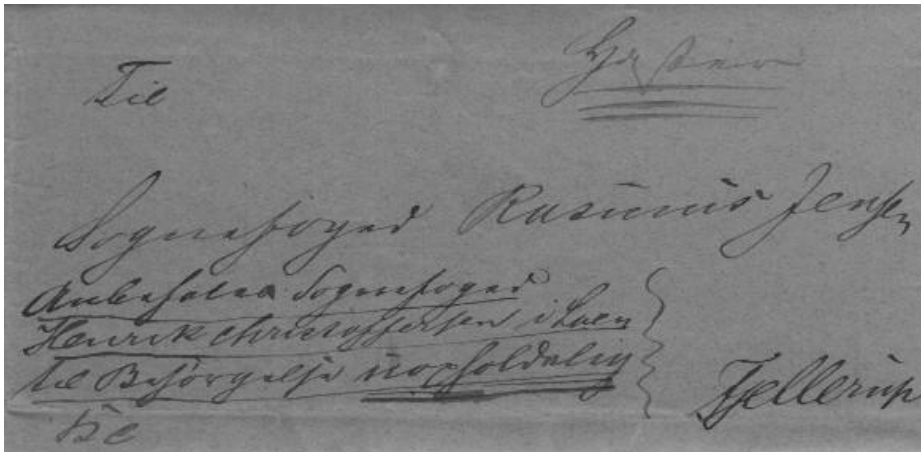 Til
Haster
Sognefoged Rasmus Jensen
Anbefales Sognefoged
Henrik Christoffersen i
til Besørgelse uopholdelig
Fjellerup